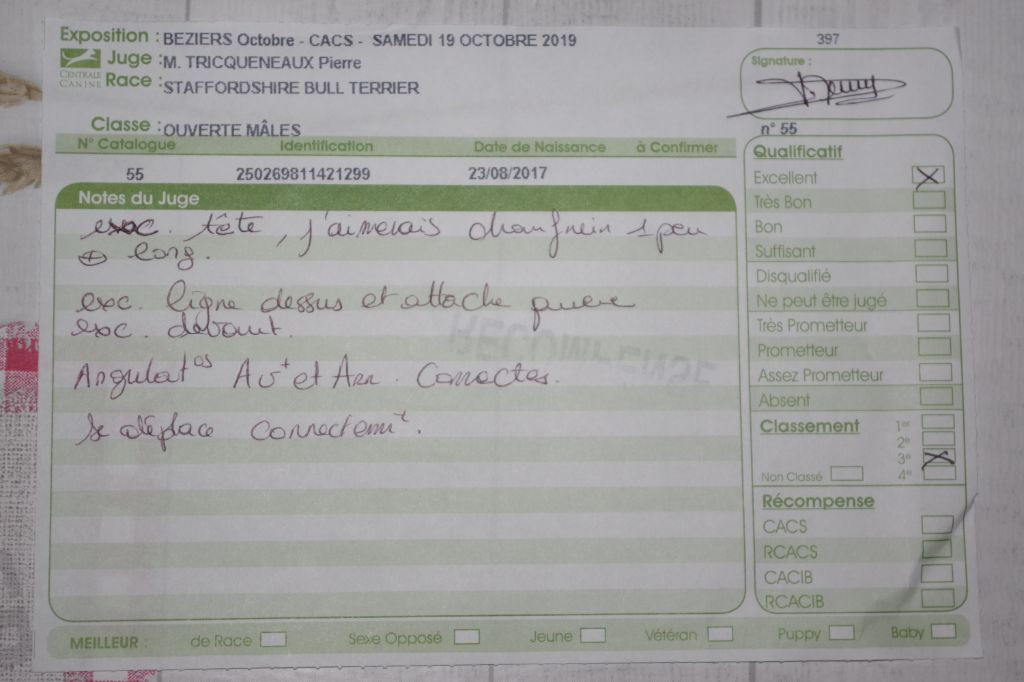 Exposition : BEZIERS Octobre - CACS - SAMEDI 19 OCTOBRE 2019
397
CENTRALE CANINE
Juge : M. TRICQUENEAUX Pierre
Race : STAFFORDSHIRE BULL TERRIER
Signature :
Classe : OUVERTE MÂLES
n° 55
N° Catalogue Identification Date de Naissance à Confirmer
55 250269811421299 23/08/2017
Notes du Juge
exc. tête, j'aimerais chanfrein 1 peu
⊕ long.
exc. ligne dessus et attache queue
exc. devant.
Angulatos Av+ et Arr. Correctes.
Se déplace correctemt.
RECOMPENSE
Qualificatif
Excellent
Très Bon
Bon
Suffisant
Disqualifié
Ne peut être jugé
Très Prometteur
Prometteur
Assez Prometteur
Absent
Classement 1er
2e
3e
Non Classé 4e
Récompense
CACS
RCACS
CACIB
RCACIB
MEILLEUR : de Race Sexe Opposé Jeune Vétéran Puppy Baby